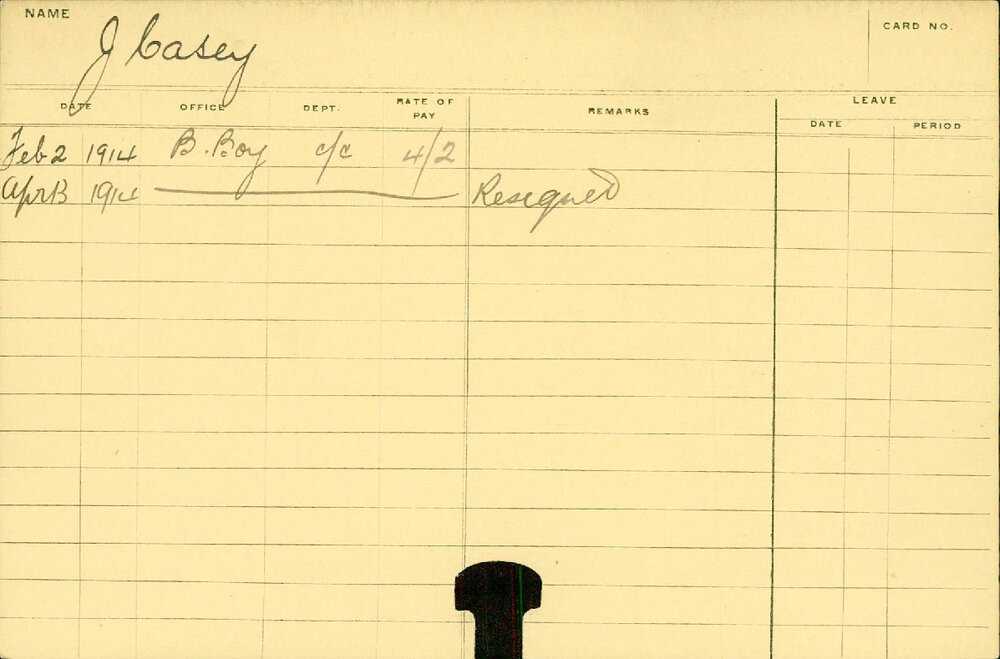 NAME
J Casey
CARD NO.
DATE OFFICE DEPT. RATE OF PAY REMARKS LEAVE
DATE PERIOD
Feb 2 1914 B. Boy c/c 4/2
Apr 13 1914 Resigned